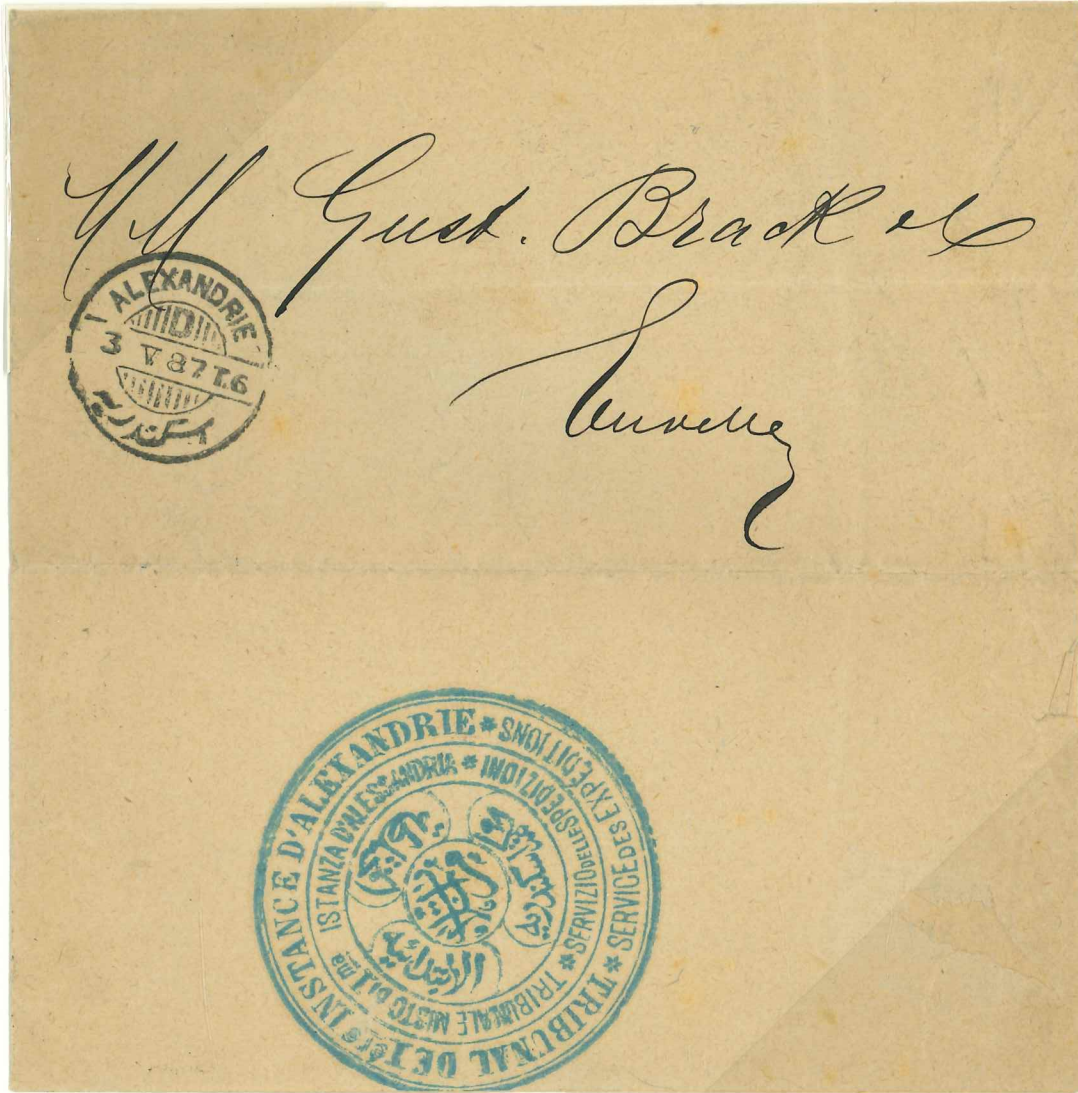 MM Gust. Brack
ALEXANDRIE
D
3 V 87 T.6
اسكندرية
TRIBUNAL DE 1ère INSTANCE D'ALEXANDRIE * SERVICE DES EXPÉDITIONS *
TRIBUNALE MISTO DI 1ma ISTANZA D'ALESSANDRIA * SERVIZIO DELLE SPEDIZIONI *
الابتدائية